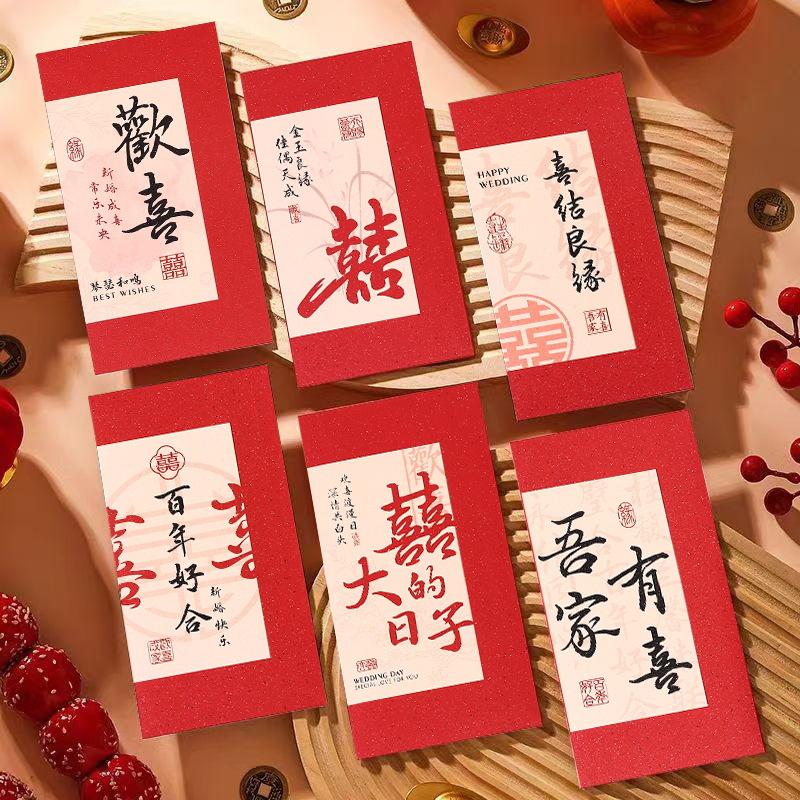 歡喜
緣
新婚成喜
常乐未央
囍
琴瑟和鸣
BEST WISHES
金玉良缘
佳偶天成
囍
HAPPY
WEDDING
喜结良缘
囍
吾家有喜
囍
百年好合
新婚快乐
囍
深情共白头
囍的
大日子
囍
WEDDING DAY
SPECIAL LOVE FOR YOU
緣
吾家
有喜
百年好合